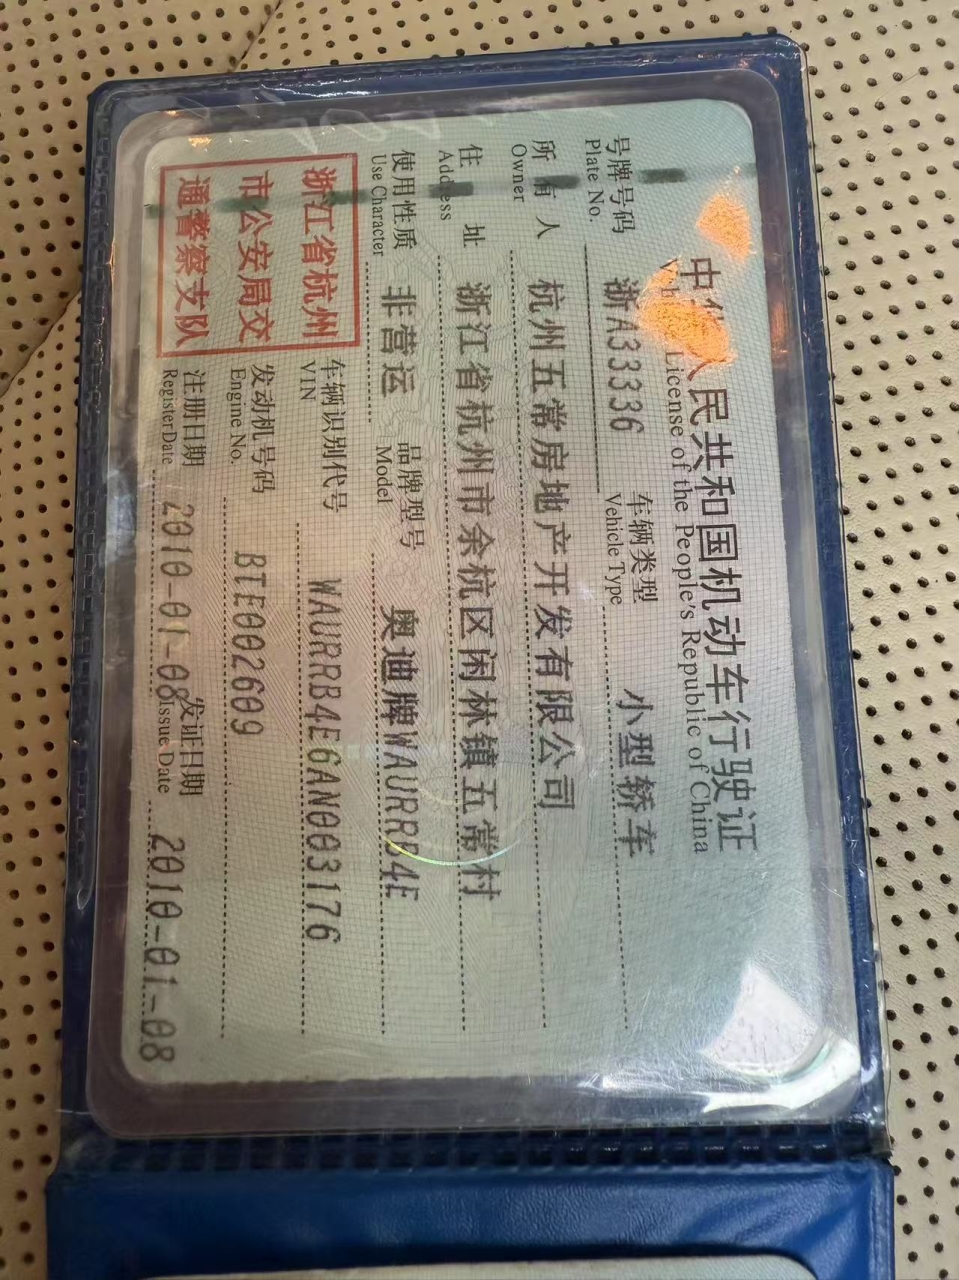 中华人民共和国机动车行驶证
License of the People's Republic of China
号牌号码 浙A33336 车辆类型 小型轿车
Plate No. Vehicle Type
所有人 杭州五常房地产开发有限公司
Owner
住址 浙江省杭州市余杭区闲林镇五常村
Address
使用性质 非营运 品牌型号 奥迪牌WAURRB4E
Use Character Model
浙江省杭州
市公安局交
通警察支队
车辆识别代号 WAURRB4E6AN003176
VIN
发动机号码 BTE002609
Engine No.
注册日期 2010-01-08 发证日期 2010-01-08
Register Date Issue Date